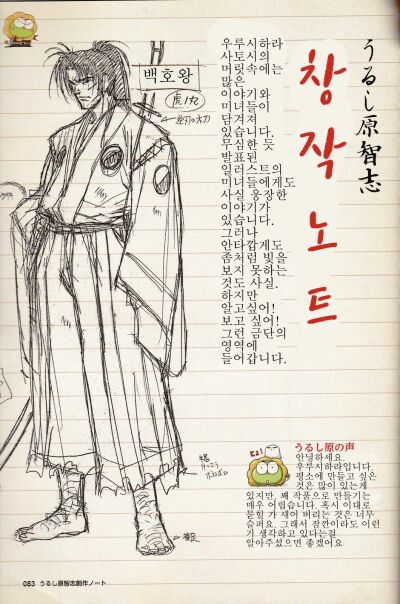 うるし原智志
창작노트
백호왕
우루시하라
사토시의
머릿속에는
많은
이야기와
미녀들이
담겨져
있습니다.
무심한 듯
발표된
일러스트의
미녀들에게도
사실 웅장한
이야기가
있습니다.
그러나
안타깝게도
좀처럼 빛을
보지 못하는
것도 사실.
하지만
알고싶어!
보고 싶어!
그런 금단의
영역에
들어갑니다.
うるし原の声
안녕하세요.
우루시하라입니다.
평소에 만들고 싶은
것은 많이 있는게
있지만, 꽤 작품으로 만들기는
매우 어렵습니다. 혹시 이대로
묻힐 가 새어 버리는 것은 너무
슬퍼요. 그래서 잠깐이라도 이런
거 생각하고 있다는걸
알아주셨으면 좋겠어요
裸足
083 うるし原智志創作ノート